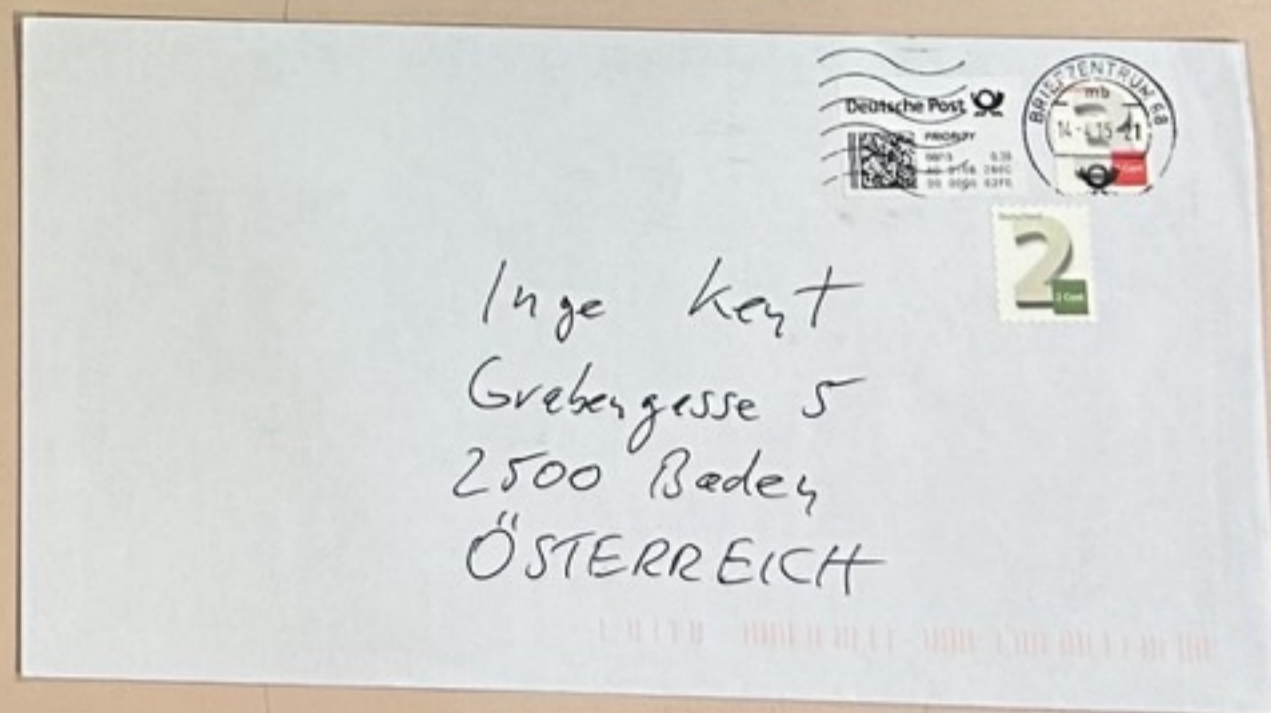 Deutsche Post
PRIORITY
BRIEFZENTRUM 68
mb
21
Deutschland
2
2 Cent
Inge Kent
Grabengasse 5
2500 Baden
ÖSTERREICH